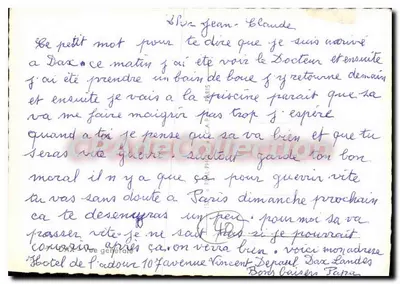 Mon Jean-Claude
Ce petit mot pour te dire que je suis arrivé
a Dax. ce matin j'ai été voir le Docteur et ensuite
j'ai été prendre un bain de boue j'y retourne demain
et ensuite je vais a la piscine parait que sa
va me faire maigrir pas trop j'espére
quand a toi je pense que sa va bien et que tu
seras vite guerit. surtout garde ton bon
moral il n y a que ça pour guerir vite
tu vas sans doute a Paris dimanche prochain
ca te desennuyras un peu. pour moi sa va
passer vite je ne sait pas si je pourrait
après ça on vivra bien. voici mon adresse
Hotel de l'adour 107 avenue Vincent Depaul Dax Landes
Bons baisers Papa